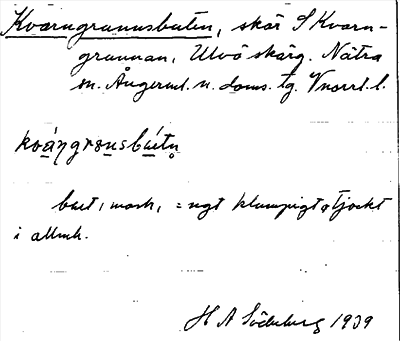 Kvarngrunnsbuten, skär S Kvarn-
grunnan, Ulvö skärg. Nätra
sn. Ångerml. n. doms. tg. Vnorrl. l.
kvángrɵnsbʉ́tn̥
but, mask, = ngt klumpigt o tjockt
i allmh.
H A Söderberg 1939